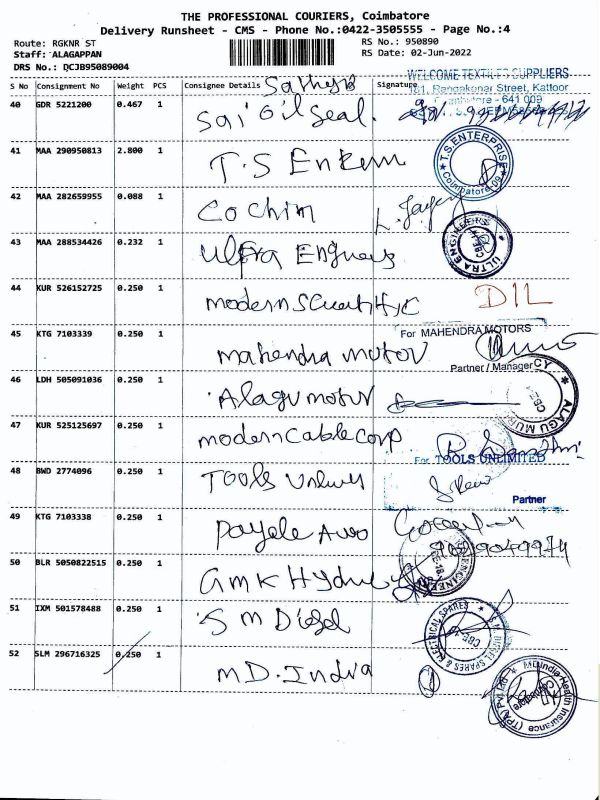 THE PROFESSIONAL COURIERS, Coimbatore
Delivery Runsheet - CMS - Phone No.:0422-3505555 - Page No.:4
Route: RGKNR ST
RS No.: 950890
Staff: ALAGAPPAN
RS Date: 02-Jun-2022
DRS No.: DCJB95089004
S No Consignment No Weight PCS Consignee Details Signature
WELCOME TEXTILES SUPPLIERS
Street, Kattoor
- 641 009
40 GDR 5221200 0.467 1 Sai Oil Seal.
41 MAA 290950813 2.800 1 T.S
T.S ENTERPRISE
Coimbatore 09
42 MAA 282659955 0.088 1 Cochin
43 MAA 288534426 0.232 1 Ultra
ULTRA ENGINEERS
CBE
44 KUR 526152725 0.250 1 modern
DIL
45 KTG 7103339 0.250 1 mahendra motor
For MAHENDRA MOTORS
Partner / Manager
46 LDH 505091036 0.250 1 Alagu motor
ALAGU
CBE
47 KUR 525125697 0.250 1 modern cable corp
For TOOLS UNLIMITED
48 BWD 2774096 0.250 1 Tools
Partner
49 KTG 7103338 0.250 1
50 BLR 5050822515 0.250 1 GMK
51 IXM 501578488 0.250 1 S m Diesel
S.M. DIESEL SPARES & ELECTRICAL SPARES
52 SLM 296716325 0.250 1 MD. India
MDIndia Health Insurance (TPA) Pvt Ltd
Coimbatore